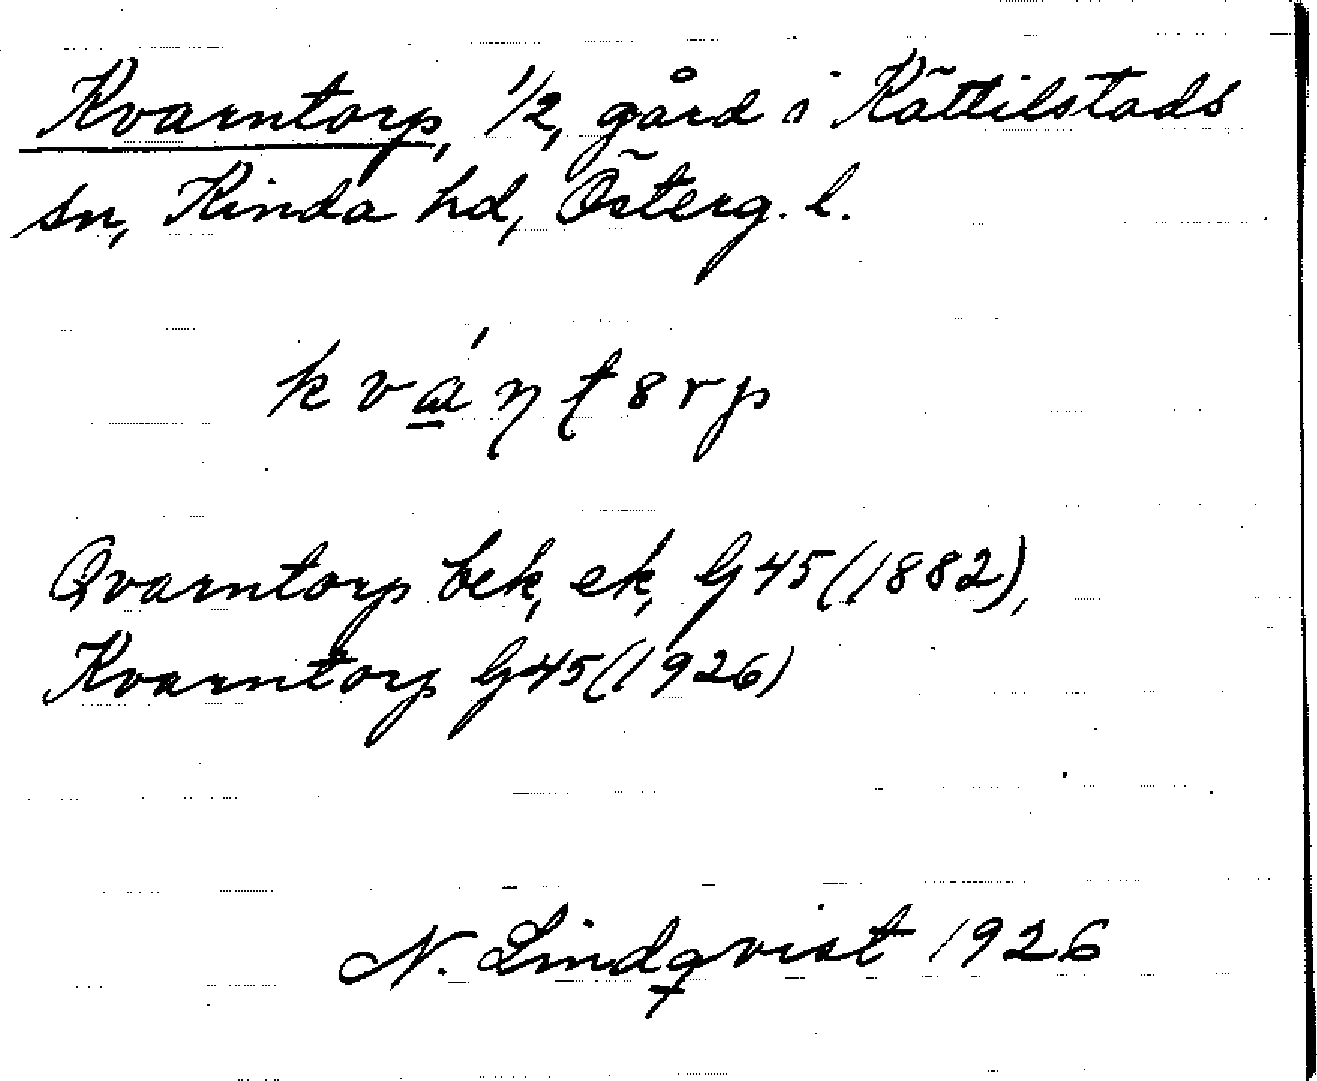 Kvarntorp, 1/2, gård i Kättilstads
sn, Kinda hd, Österg. l.
kvɑ́ɳʈ8rp
Qvarntorp bek, ek, G45(1882),
Kvarntorp G45(1926)
N. Lindqvist 1926